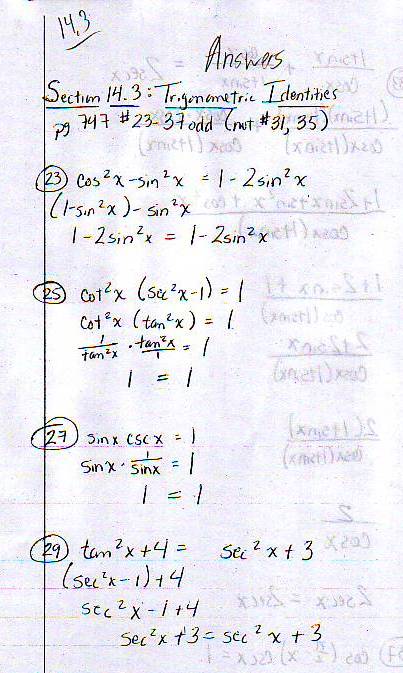 14.3
Answers
Section 14.3: Trigonometric Identities
pg 747 #23-37 odd (not #31, 35)
23 cos²x - sin²x = 1 - 2sin²x
(1-sin²x) - sin²x
1-2sin²x = 1-2sin²x
25 cot²x (sec²x-1) = 1
cot²x (tan²x) = 1
1/tan²x · tan²x/1 = 1
1 = 1
27 sinx cscx = 1
sinx · 1/sinx = 1
1 = 1
29 tan²x+4 = sec²x + 3
(sec²x-1)+4
sec²x-1+4
sec²x+3 = sec²x + 3